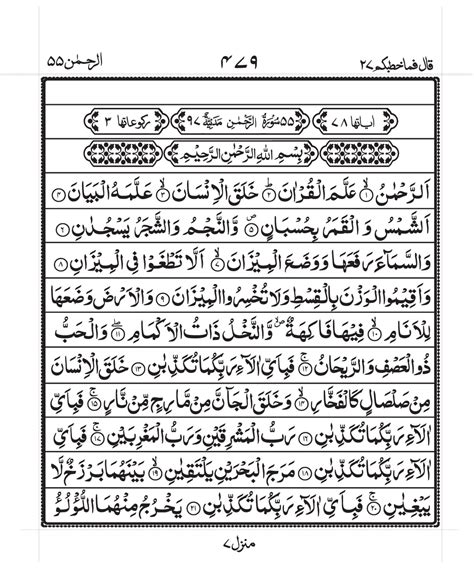 قال فماخطبكم ٢٧ ٤٧٩ الرحمٰن ٥٥
اٰیاتها ٧٨ ٥٥ سُوْرَةُ الرَّحْمٰنِ مَدَنِیَّةٌ ٩٧ رکوعاتها ٣
بِسْمِ اللهِ الرَّحْمٰنِ الرَّحِیْمِ
اَلرَّحْمٰنُ ۙ﴿١﴾ عَلَّمَ الْقُرْاٰنَ ؕ﴿٢﴾ خَلَقَ الْاِنْسَانَ ۙ﴿٣﴾ عَلَّمَهُ الْبَیَانَ ﴿٤﴾
اَلشَّمْسُ وَ الْقَمَرُ بِحُسْبَانٍ ﴿٥﴾ وَّالنَّجْمُ وَالشَّجَرُ یَسْجُدٰنِ ﴿٦﴾
وَالسَّمَآءَ رَفَعَهَا وَوَضَعَ الْمِیْزَانَ ۙ﴿٧﴾ اَلَّا تَطْغَوْا فِی الْمِیْزَانِ ﴿٨﴾
وَاَقِیْمُوا الْوَزْنَ بِالْقِسْطِ وَلَا تُخْسِرُوا الْمِیْزَانَ ﴿٩﴾ وَالْاَرْضَ وَضَعَهَا
لِلْاَنَامِ ۙ﴿١٠﴾ فِیْهَا فَاكِهَةٌ ۪ۙ وَّالنَّخْلُ ذَاتُ الْاَكْمَامِ ۖ﴿١١﴾ وَالْحَبُّ
ذُو الْعَصْفِ وَالرَّیْحَانُ ۚ﴿١٢﴾ فَبِاَیِّ اٰلَآءِ رَبِّكُمَا تُكَذِّبٰنِ ﴿١٣﴾ خَلَقَ الْاِنْسَانَ
مِنْ صَلْصَالٍ كَالْفَخَّارِ ۙ﴿١٤﴾ وَخَلَقَ الْجَآنَّ مِنْ مَّارِجٍ مِّنْ نَّارٍ ۚ﴿١٥﴾ فَبِاَیِّ
اٰلَآءِ رَبِّكُمَا تُكَذِّبٰنِ ﴿١٦﴾ رَبُّ الْمَشْرِقَیْنِ وَرَبُّ الْمَغْرِبَیْنِ ۚ﴿١٧﴾ فَبِاَیِّ
اٰلَآءِ رَبِّكُمَا تُكَذِّبٰنِ ﴿١٨﴾ مَرَجَ الْبَحْرَیْنِ یَلْتَقِیٰنِ ۙ﴿١٩﴾ بَیْنَهُمَا بَرْزَخٌ لَّا
یَبْغِیٰنِ ۚ﴿٢٠﴾ فَبِاَیِّ اٰلَآءِ رَبِّكُمَا تُكَذِّبٰنِ ﴿٢١﴾ یَخْرُجُ مِنْهُمَا اللُّؤْلُؤُ
منزل ٧